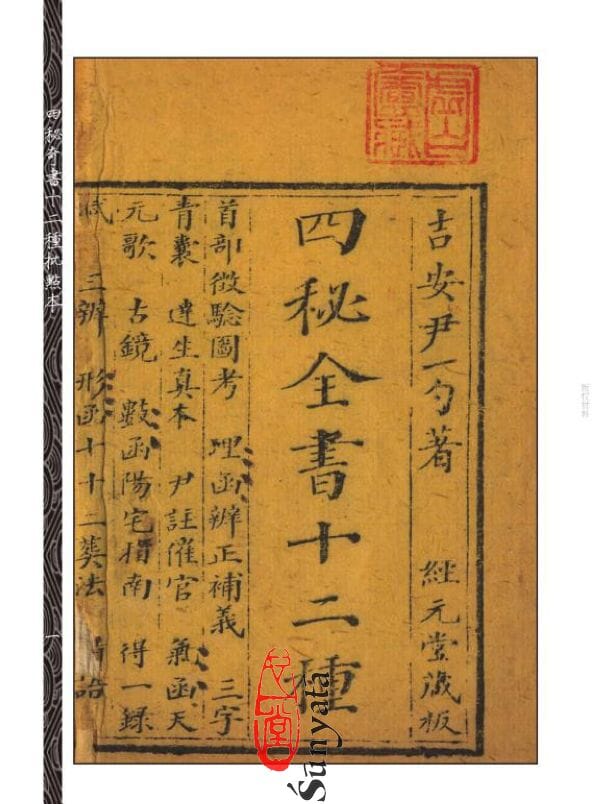 吉安尹一勺著 經元堂藏板
四秘全書十二種
首部徵驗圖考 理函辨正補義 三字
青囊 達生真本 尹註催官 氣函天
元歌 古鏡 數函陽宅指南 得一録
三辨 形函十十二葬法
四秘奇書十二種批點本
一
心一堂
Śūnyatā